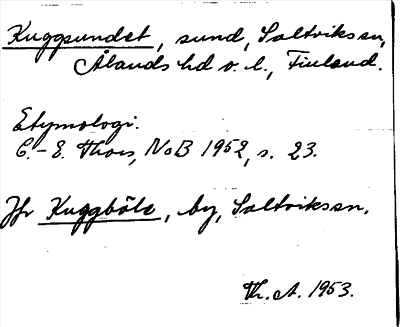 Kuggsundet, sund, Saltviks sn,
Ålands hd o. l., Finland.
Etymologi.
C.-E. Thors, NoB 1952, s. 23.
Jfr Kuggböle, by, Saltviks sn.
Th. A. 1953.